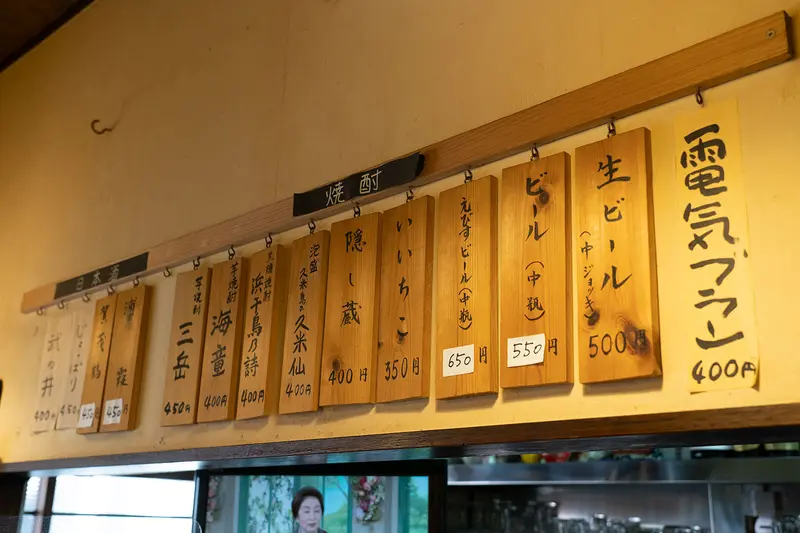 電気ブラン
400円
生ビール
(中ジョッキ)
500円
ビール
(中瓶)
550円
えびすビール(中瓶)
650円
焼酎
いいちこ
350円
隠し蔵
400円
泡盛
久米島の久米仙
400円
黒糖焼酎
浜千鳥の詩
400円
芋焼酎
海童
400円
芋焼酎
三岳
450円
日本酒
浦霞
450
賀茂鶴
450